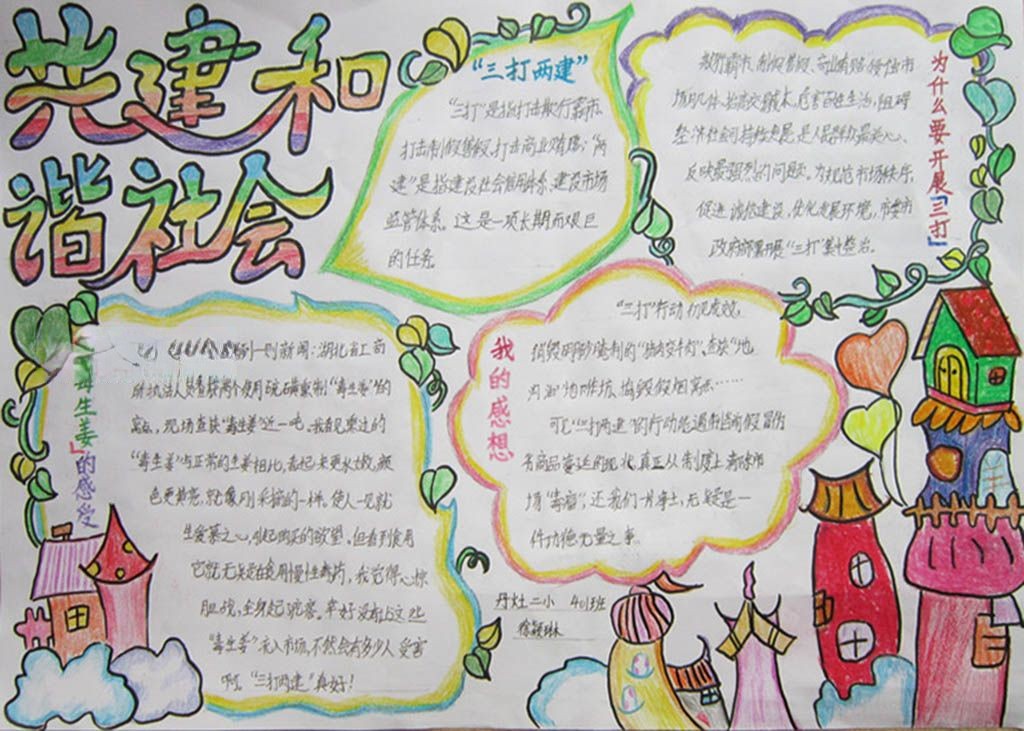 共建和
谐社会
“三打两建”
“三打”是指打击欺行霸市、
打击制假售假、打击商业贿赂;“两
建”是指建设社会信用体系、建设市场
监管体系。这是一项长期而艰巨
的任务。
为什么要开展「三打」
欺行霸市、制假售假、商业贿赂侵蚀市
场肌体、危害百姓生活,阻碍
经济社会可持续发展,是人民群众最关心、
反映最强烈的问题。为规范市场秩序,
促进诚信建设,优化发展环境,市委市
政府部署开展“三打”集中整治。
毒生姜」的感受
到一则新闻:湖北省工商
执法人员查获两个使用硫磺熏制“毒生姜”的
窝点,现场查获“毒生姜”近一吨。我看见熏过的
“毒生姜”与正常的生姜相比,看起来更水嫩,颜
色更黄亮,就像刚采摘的一样,使人一见就
生爱慕之心,引起购买的欲望。但看到食用
它就无异在食用慢性毒药,我觉得心惊
胆战,全身起疙瘩。幸好没有让这些
“毒生姜”流入市场,不然会有多少人受害
啊。“三打两建”真好!
我的感想
“三打”行动初见成效。
销毁
窝点……
可见“三打两建”的行动能遏制当前假冒伪
劣商品蔓延的现状,真正从制度上清除市
场“毒瘤”,还我们一片净土,无疑是一
件功德无量之事。
丹灶二小 4(1)班
徐颖琳